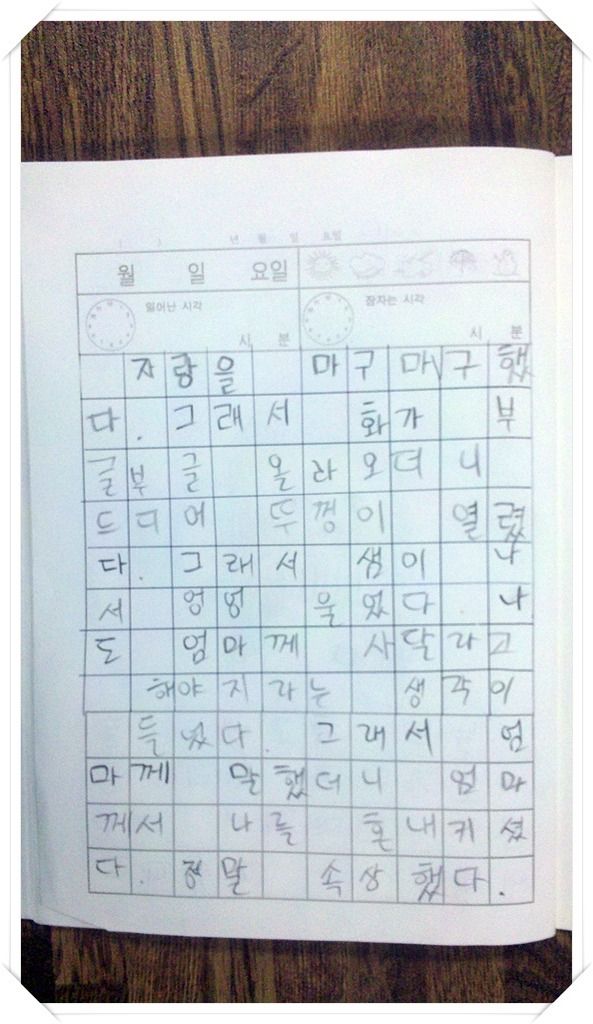 년 월 일 요일
월 일 요일
일어난 시각 잠자는 시각
시 분 시 분
자랑을 마구 마구 했
다. 그래서 화가 부
글부글 올라오더니
드디어 뚜껑이 열렸
다. 그래서 샘이 나
서 엉엉 울었다. 나
도 엄마께 사달라고
해야지라는 생각이
들었다. 그래서 엄
마께 말했더니 엄마
께서 나를 혼내키셨
다. 정말 속상했다.